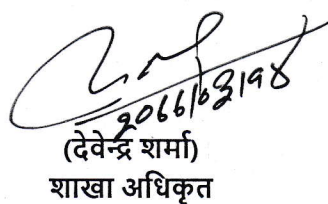 २०६६/०३/१४
(देवेन्द्र शर्मा)
शाखा अधिकृत